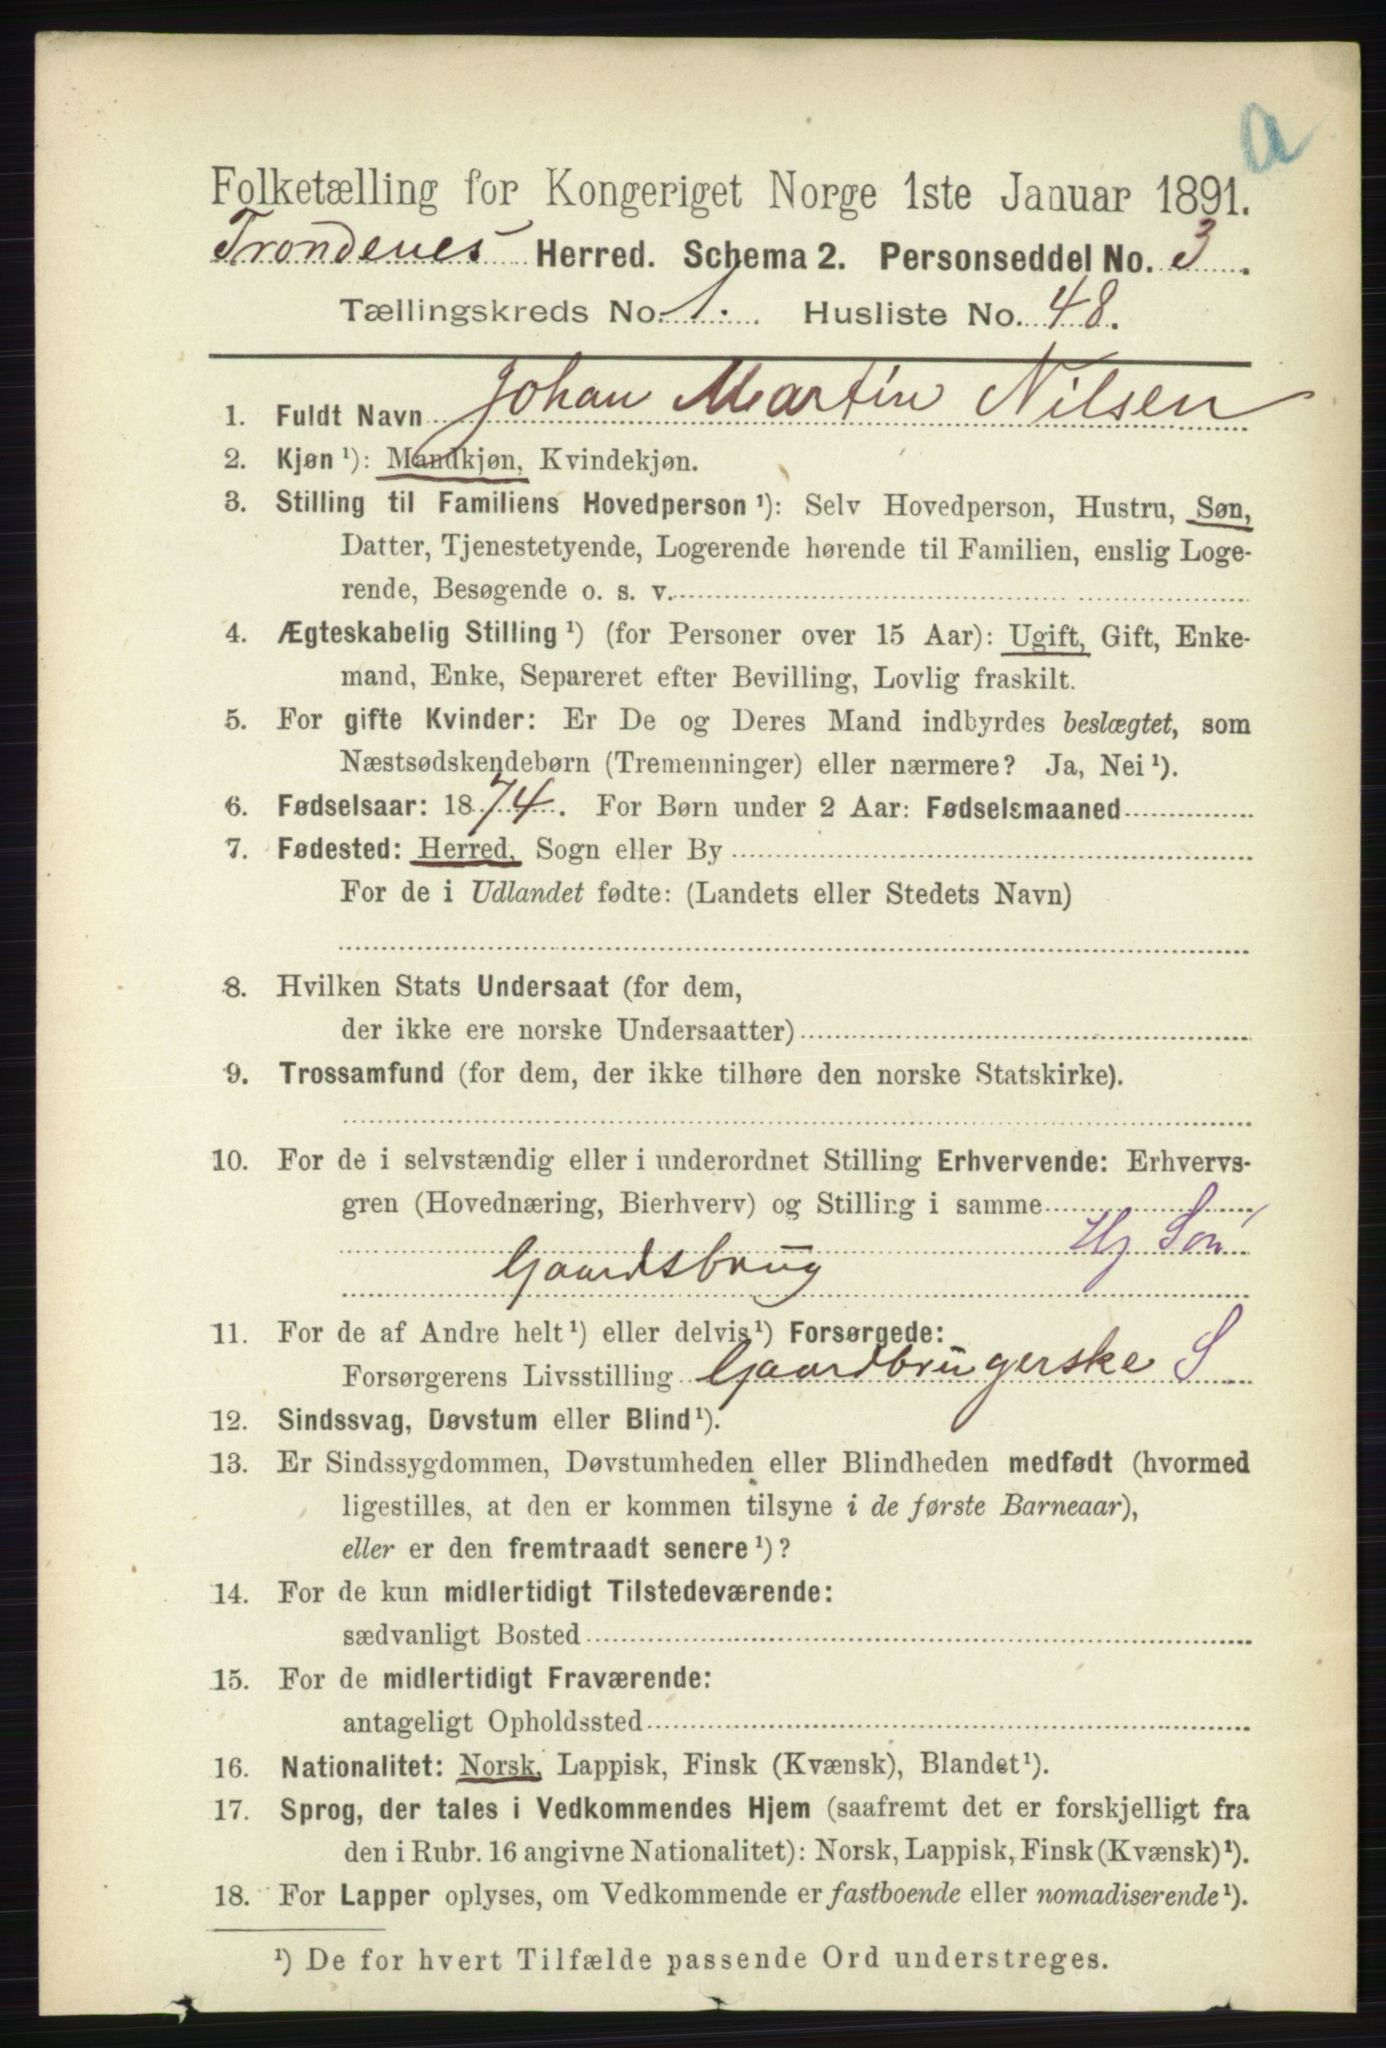 a
Folketælling for Kongeriget Norge 1ste Januar 1891.
Trondenes Herred. Schema 2. Personseddel No. 3.
Tællingskreds No. 1. Husliste No. 48.
1. Fuldt Navn Johan Martin Nilsen
2. Kjøn ¹): Mandkjøn, Kvindekjøn.
3. Stilling til Familiens Hovedperson ¹): Selv Hovedperson, Hustru, Søn,
Datter, Tjenestetyende, Logerende hørende til Familien, enslig Loge-
rende, Besøgende o. s. v.
4. Ægteskabelig Stilling ¹) (for Personer over 15 Aar): Ugift, Gift, Enke-
mand, Enke, Separeret efter Bevilling, Lovlig fraskilt.
5. For gifte Kvinder: Er De og Deres Mand indbyrdes beslægtet, som
Næstsødskendebørn (Tremenninger) eller nærmere? Ja, Nei ¹).
6. Fødselsaar: 1874. For Børn under 2 Aar: Fødselsmaaned
7. Fødested: Herred, Sogn eller By
For de i Udlandet fødte: (Landets eller Stedets Navn)
8. Hvilken Stats Undersaat (for dem,
der ikke ere norske Undersaatter)
9. Trossamfund (for dem, der ikke tilhøre den norske Statskirke).
10. For de i selvstændig eller i underordnet Stilling Erhvervende: Erhvervs-
gren (Hovednæring, Bierhverv) og Stilling i samme
Hj Søn
Gaardsbrug
11. For de af Andre helt ¹) eller delvis ¹) Forsørgede:
Forsørgerens Livsstilling Gaardbrugerske S
12. Sindssvag, Døvstum eller Blind ¹).
13. Er Sindssygdommen, Døvstumheden eller Blindheden medfødt (hvormed
ligestilles, at den er kommen tilsyne i de første Barneaar),
eller er den fremtraadt senere ¹)?
14. For de kun midlertidigt Tilstedeværende:
sædvanligt Bosted
15. For de midlertidigt Fraværende:
antageligt Opholdssted
16. Nationalitet: Norsk, Lappisk, Finsk (Kvænsk), Blandet ¹).
17. Sprog, der tales i Vedkommendes Hjem (saafremt det er forskjelligt fra
den i Rubr. 16 angivne Nationalitet): Norsk, Lappisk, Finsk (Kvænsk) ¹).
18. For Lapper oplyses, om Vedkommende er fastboende eller nomadiserende ¹).
¹) De for hvert Tilfælde passende Ord understreges.